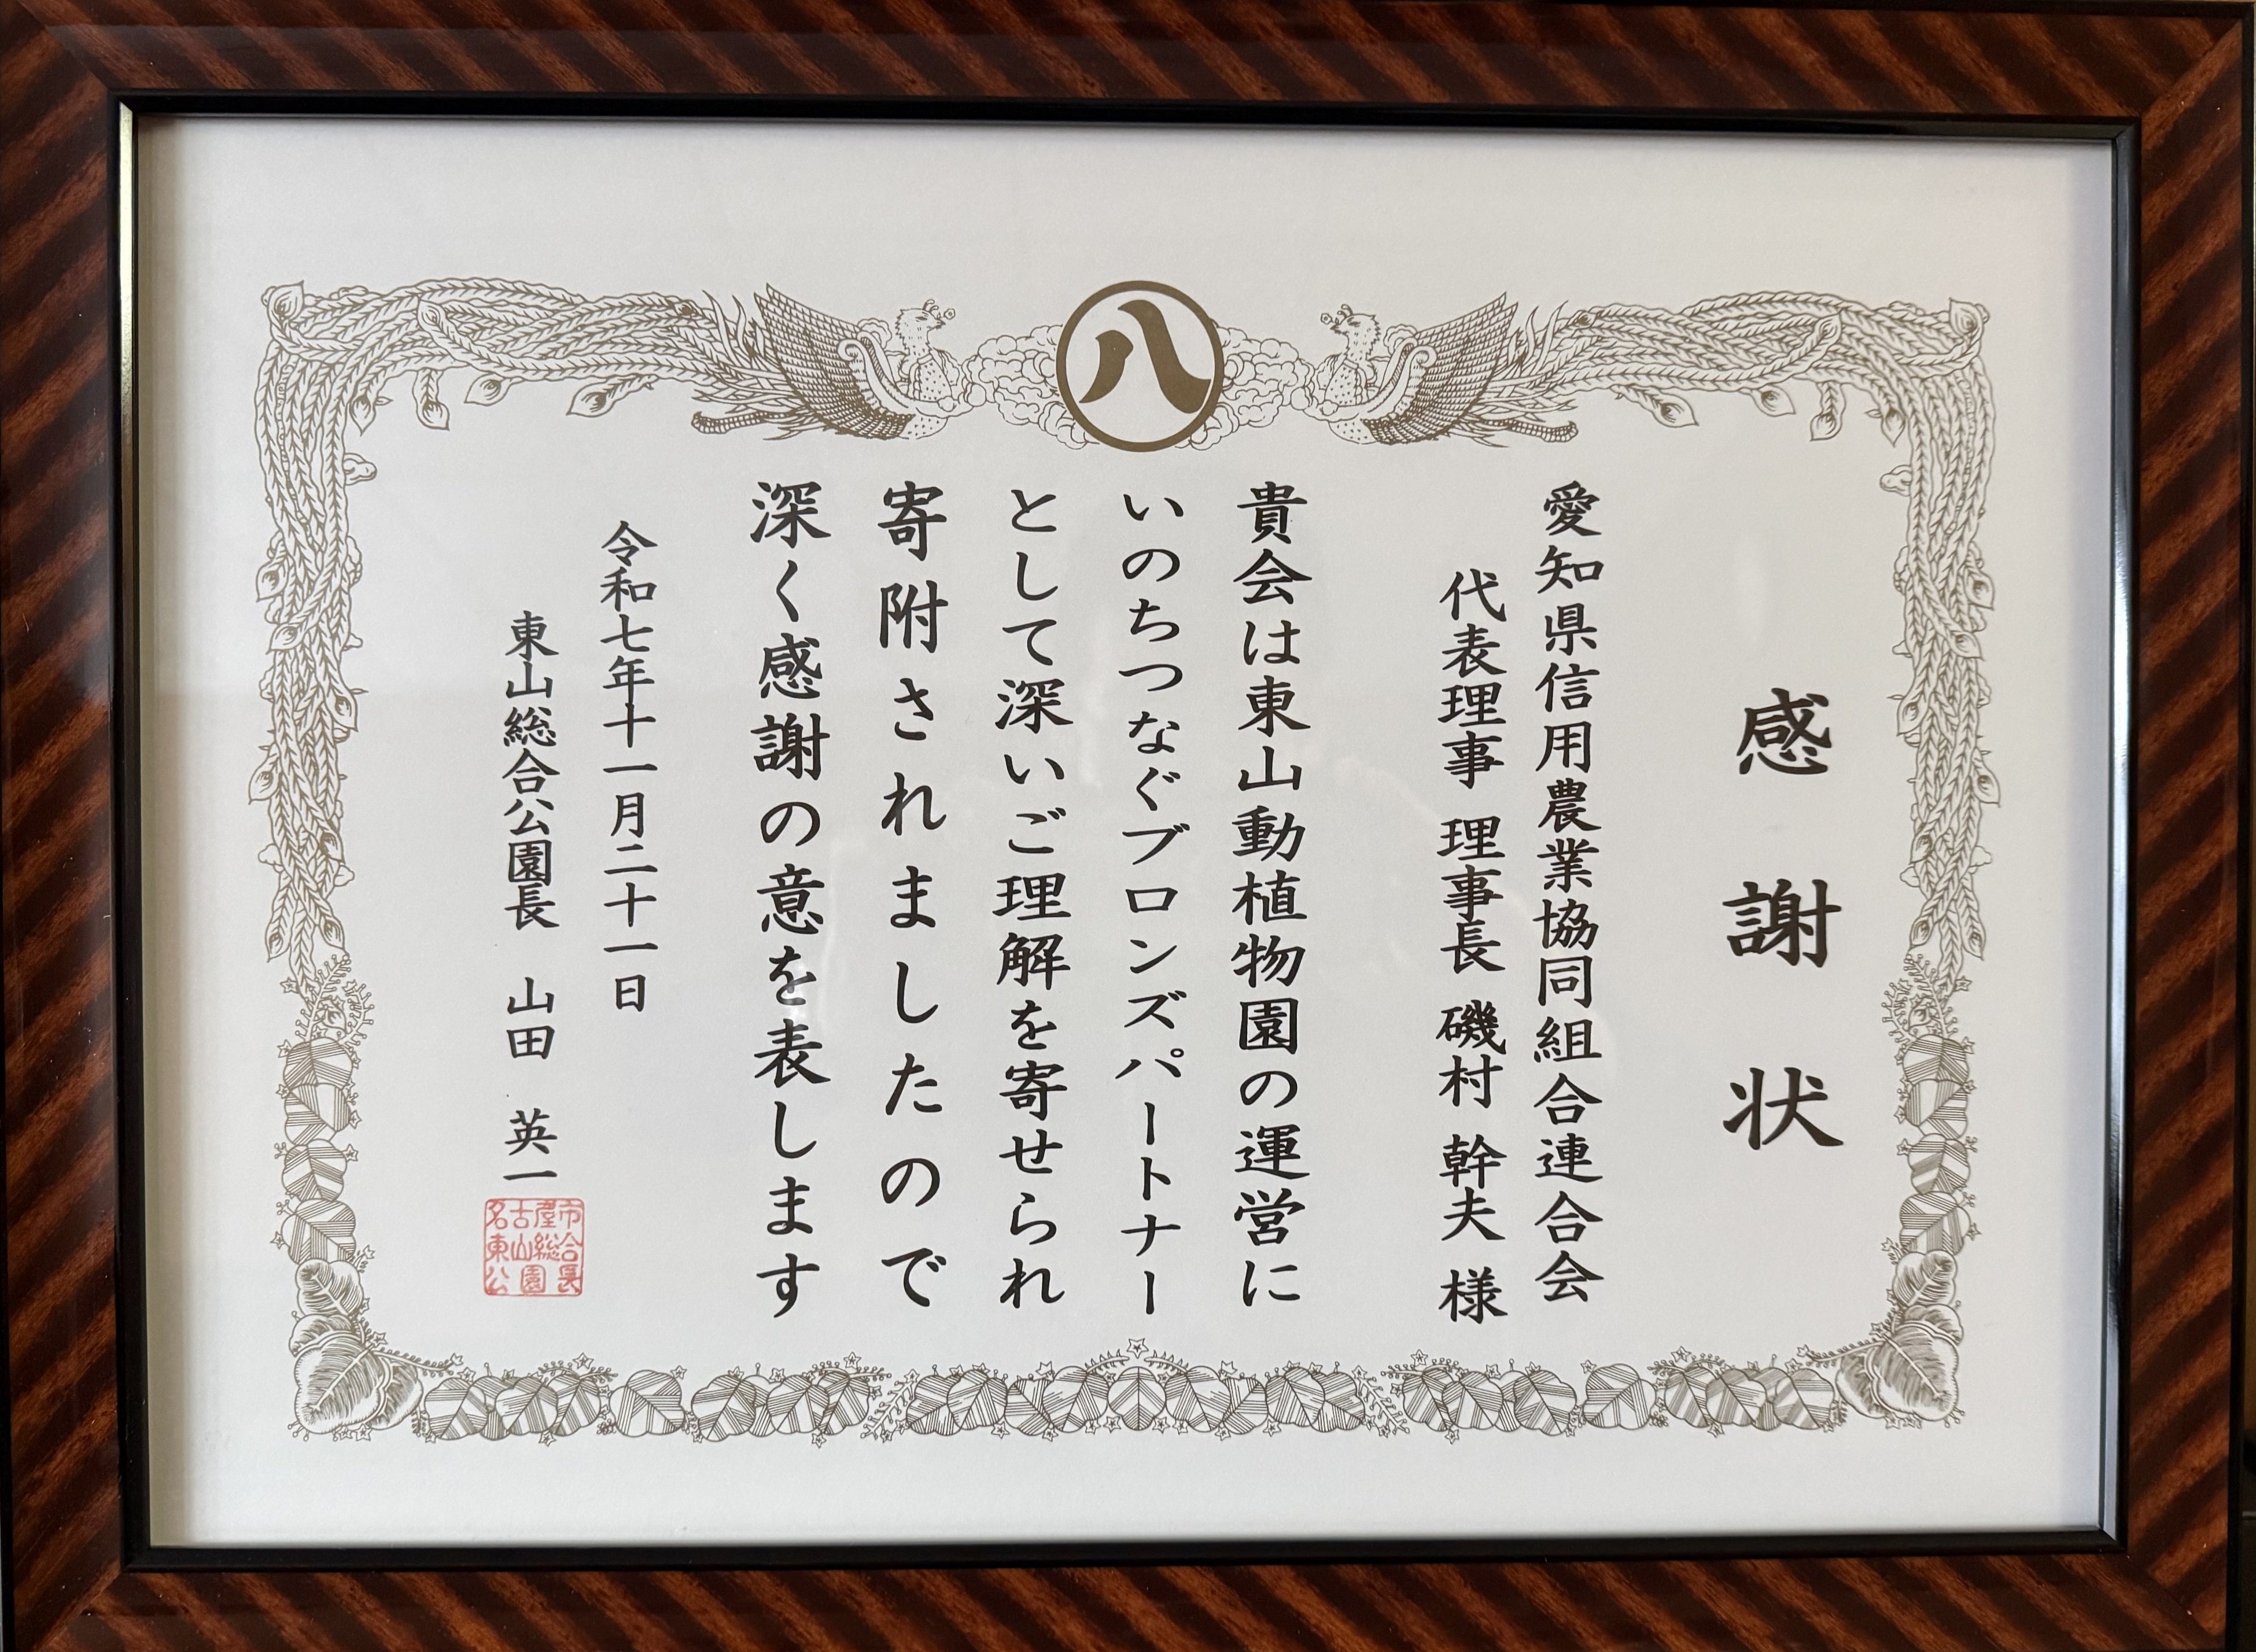 八
感謝状
愛知県信用農業協同組合連合会
代表理事 理事長 磯村 幹夫 様
貴会は東山動植物園の運営に
いのちつなぐブロンズパートナー
として深いご理解を寄せられ
寄附されましたので
深く感謝の意を表します
令和七年十一月二十一日
東山総合公園長 山田 英一
名古屋市
東山総合
公園長